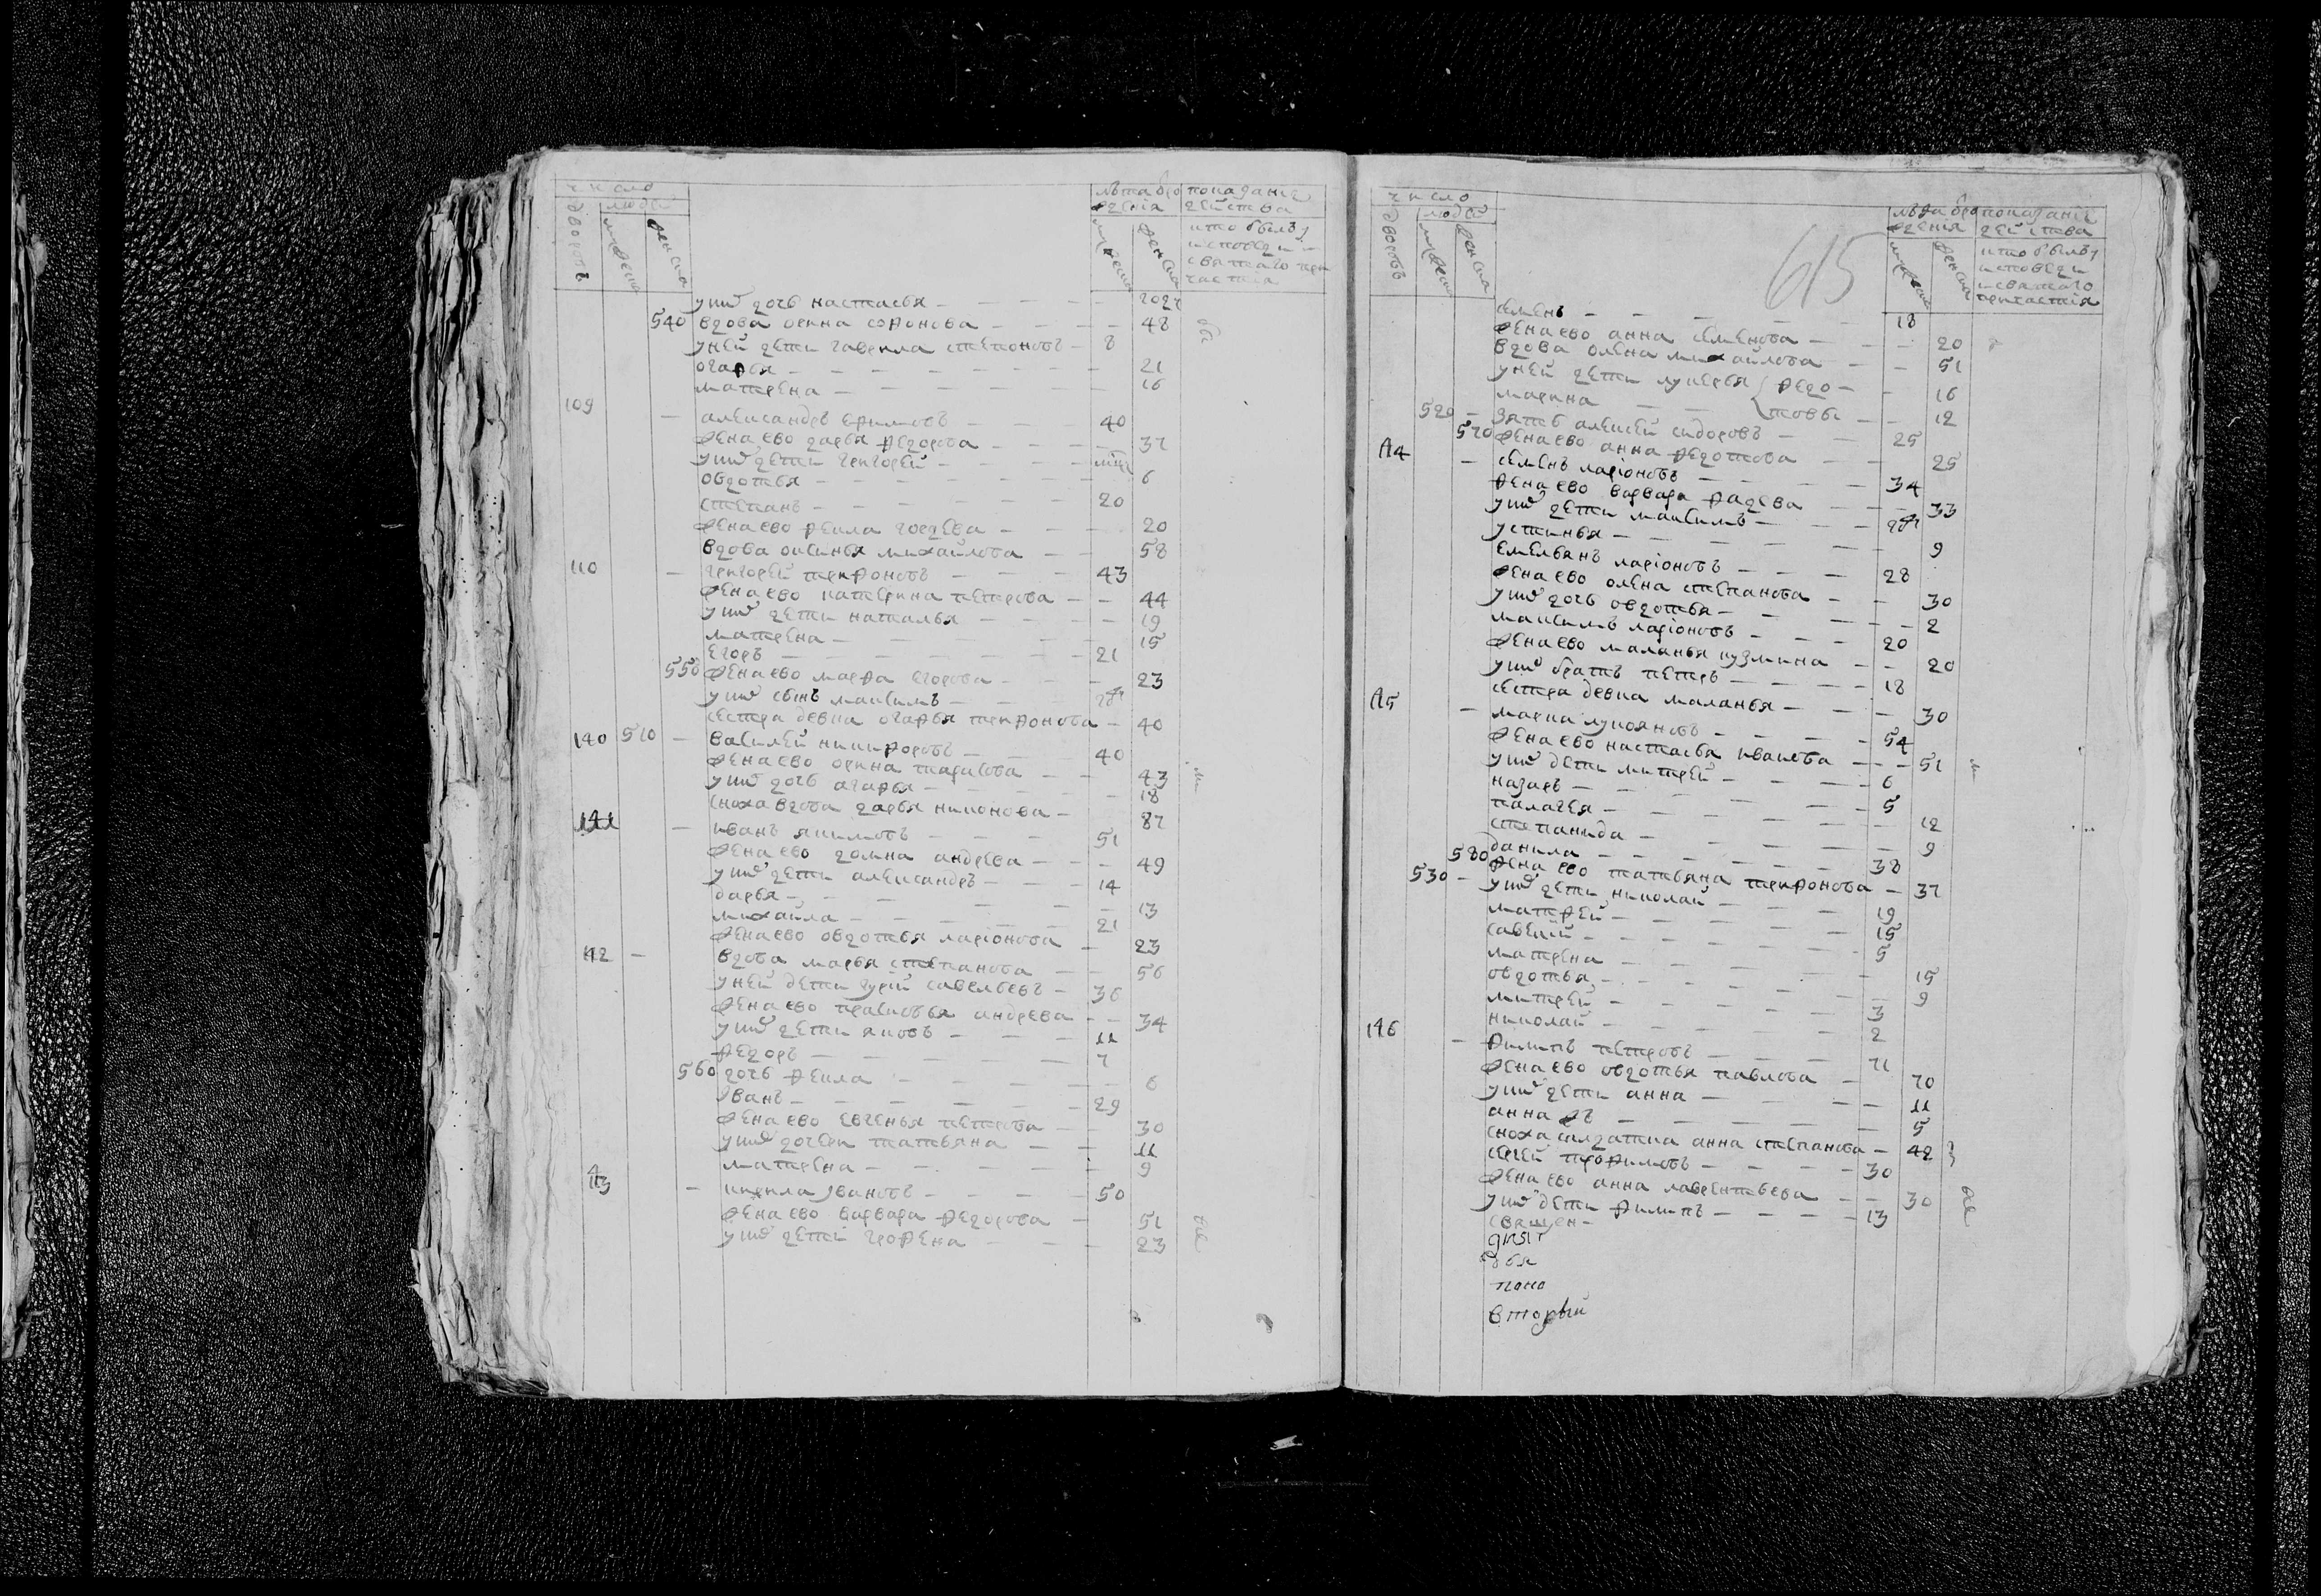 число
людей
дворовъ
мужеска
женска
лѣта вро
ждения
мужеска
женска
показание
действа
кто былъ у
исповеди и
святаго при
частия
у них дочь настасья — 20
540 вдова орина софонова — 48
у ней дети гаврила степоновъ — 8
огафья — 21
матрена — 16
109 — александръ ефимовъ — 40
жена ево дарья федорова — 37
у них дети григорей —
овдотья — 6
степанъ — 20
жена ево фекла гордева — 20
вдова оксинья михайлова — 58
110 — григорей трифоновъ — 43
жена ево катерина петрова — 44
у них дети наталья — 19
матрена — 15
егоръ — 21
550 жена ево марфа егорова — 23
у них сынъ максимъ —
сестра девка огафья трифонова — 40
140 510 — василей никифоровъ — 40
жена ево орина тарасова — 43
у них дочь агафья — 18
сноха вдова дарья никонова — 87
141 — иванъ якимовъ — 51
жена ево домна андрева — 49
у них дети александръ — 14
дарья — 13
михайла — 21
жена ево овдотья ларіонова — 23
142 — вдова марья степанова — 56
у ней дети гурій савельевъ — 36
жена ево прасковья андрева — 34
у них дети яковъ — 11
федоръ — 7
560 дочь фекла — 6
иванъ — 29
жена ево евгенья петрова — 30
у них дочери татьяна — 11
матрена — 9
143 — кирила ивановъ — 50
жена ево варвара федорова — 51
у них дети грофена — 23
число
людей
дворовъ
мужеска
женска
615
лѣта вро
ждения
мужеска
женска
показание
действа
кто былъ у
исповеди
и святаго
причастія
семенъ — 18
жена ево анна семенова — 20
вдова олена михайлова — 51
у ней дети лукерья { федо — 16
марина — { товы — 12
520 — зять алексей сидоровъ — 25
570 жена ево анна федотова — 25
144 — семенъ ларіоновъ — 34
жена ево варвара фадева — 33
у них дети максимъ —
устинья — 9
емельянъ ларіоновъ — 28
жена ево олена степанова — 30
у них дочь овдотья — 2
максимъ ларіоновъ — 20
жена ево маланья кузмина — 20
у них братъ петръ — 18
сестра девка маланья — 30
145 — марка лукояновъ — 54
жена ево настасья иванова — 51
у них дети митрей — 6
назаръ — 5
палагея — 12
степанида — 9
данила — 38
580 жена ево татьяна трифонова — 37
530 — у них дети николай — 19
матфей — 15
савелий — 5
матрена — 15
овдотья — 9
митрей — 3
николай — 2
146 — филипъ петровъ — 71
жена ево овдотья павлова — 70
у них дети анна — 11
анна — 5
сноха салдатка анна степанова — 42
сергей трофимовъ — 30
жена ево анна лаврентьева — 30
у них дети филипъ — 13
священ-
дья
поно
вторый